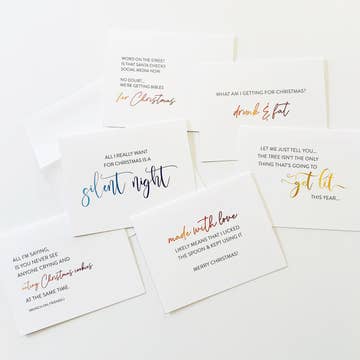 WORD ON THE STREET
IS THAT SANTA CHECKS
SOCIAL MEDIA NOW
NO DOUBT...
WE'RE GETTING BIBLES
for Christmas
WHAT AM I GETTING FOR CHRISTMAS?
drunk & fat
ALL I REALLY WANT
FOR CHRISTMAS IS A
silent night
LET ME JUST TELL YOU...
THE TREE ISN'T THE ONLY
THING THAT'S GOING TO
get lit
THIS YEAR...
ALL I'M SAYING,
IS YOU NEVER SEE
ANYONE CRYING AND
eating Christmas cookies
AT THE SAME TIME.
made with love
LIKELY MEANS THAT I LICKED
THE SPOON & KEPT USING IT
MERRY CHRISTMAS!